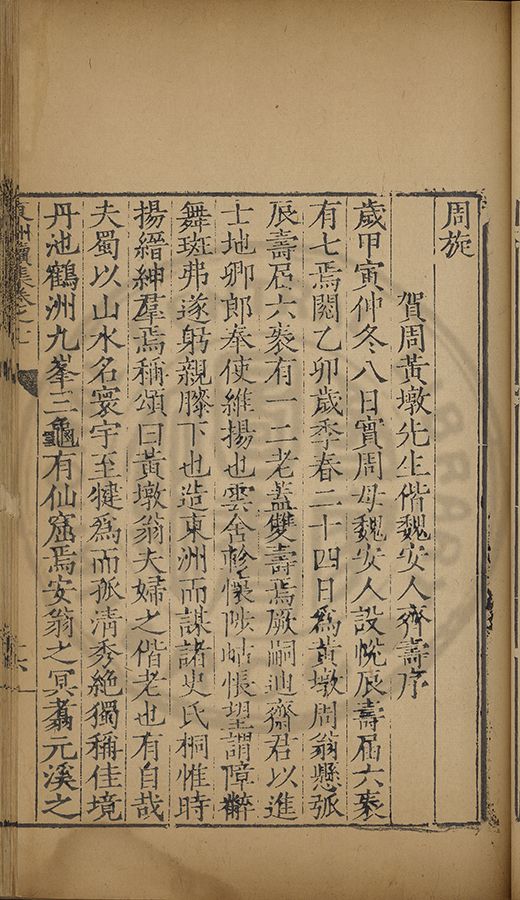 周旋
賀周黃墩先生偕魏安人齊壽序
歲甲寅仲冬八日實周母魏安人設帨辰壽屆六袠
有七焉閱乙卯歲季春二十四日為黃墩周翁懸弧
辰壽屆六袠有一二老蓋雙壽焉厥嗣迪齋君以進
士地卿郎奉使維揚也雲舍軫懷陟岵悵望謂障
舞斑弗遂躬親膝下也造東洲而謀諸史氏桐惟時
揚縉紳羣焉稱頌曰黃墩翁夫婦之偕老也有自哉
夫蜀以山水名寰宇至犍為而孤清秀絕獨稱佳境
丹池鶴洲九峯三龜有仙窟焉安翁之冥翥元溪之
東洲續集卷之七